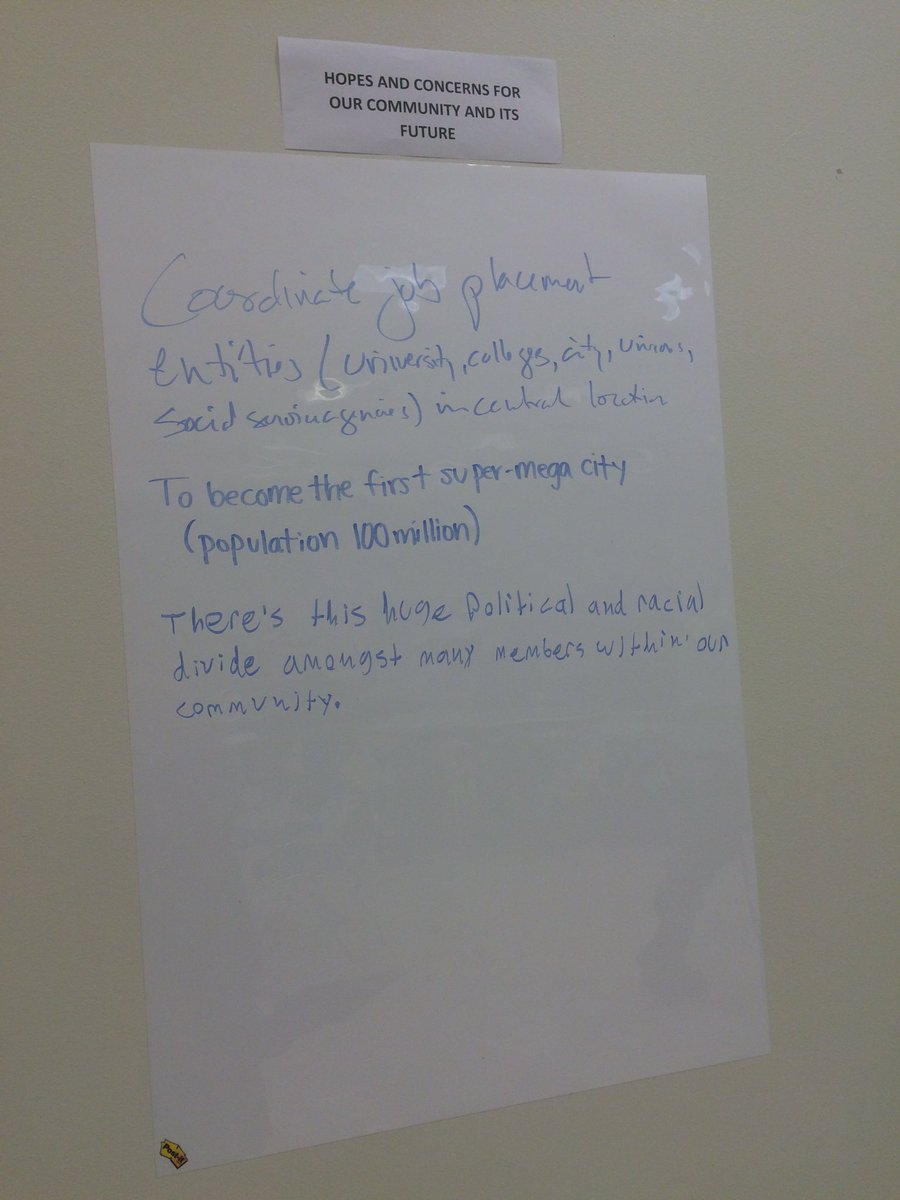 HOPES AND CONCERNS FOR
OUR COMMUNITY AND ITS
FUTURE
Coordinate job placement
entities (University, colleges, city, unions,
Social service agencies) in central location
To become the first super-mega city
(population 100 million)
There's this huge Political and racial
divide amongst many members within our
community.
Post-it